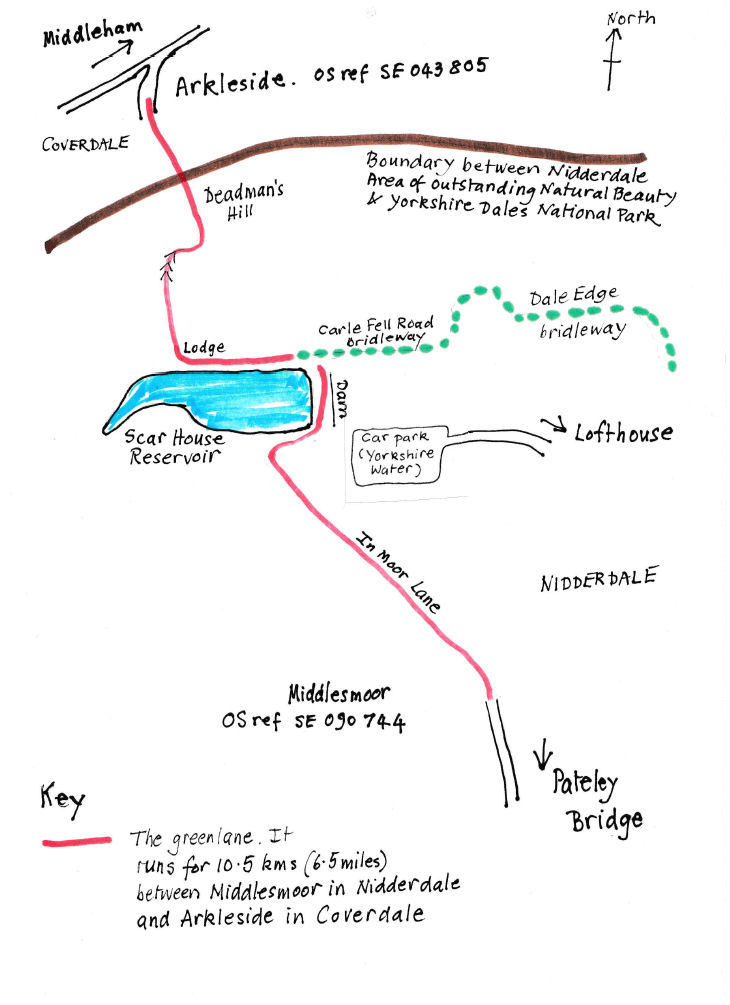 North
Middleham
Arkleside. OS ref SE 043 805
COVERDALE
Boundary between Nidderdale
Area of Outstanding Natural Beauty
& Yorkshire Dales National Park
Deadman's
Hill
Dale Edge
bridleway
Carle Fell Road
Bridleway
Lodge
Dam
Scar House
Reservoir
Car park
(Yorkshire
Water)
Lofthouse
In Moor Lane
NIDDERDALE
Middlesmoor
OS ref SE 090 744
Pateley
Bridge
Key
The greenlane. It
runs for 10.5 kms (6.5 miles)
between Middlesmoor in Nidderdale
and Arkleside in Coverdale